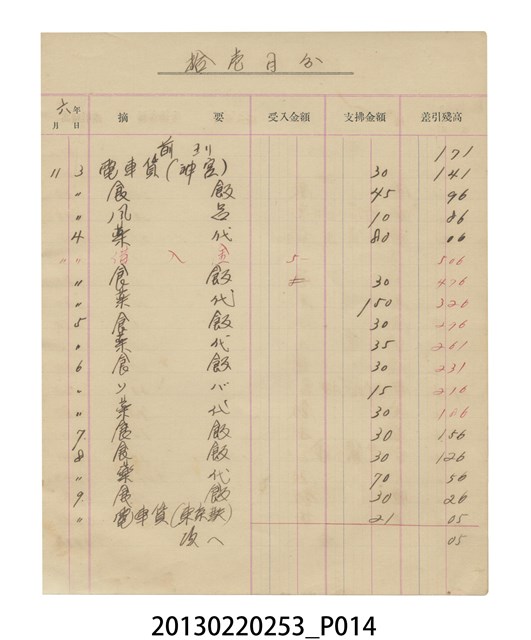 拾壱月分
六年 月 日 摘要 受入金額 支拂金額 差引残高
前ヨリ 171
11 3 電車賃(神宮) 30 141
〃 食飯 45 96
〃 風呂 10 86
4 菓代 80 06
〃 〃 借入金 5- 506
〃 食飯 30 476
〃 菓代 150 326
5 食飯 30 296
〃 菓代 35 261
6 食飯 30 231
〃 ソバ 15 216
〃 菓代 30 186
7 食飯 30 156
8 食飯 30 126
〃 菓代 70 56
9 食飯 30 26
〃 電車賃 21 05
次へ 05
20130220253_P014